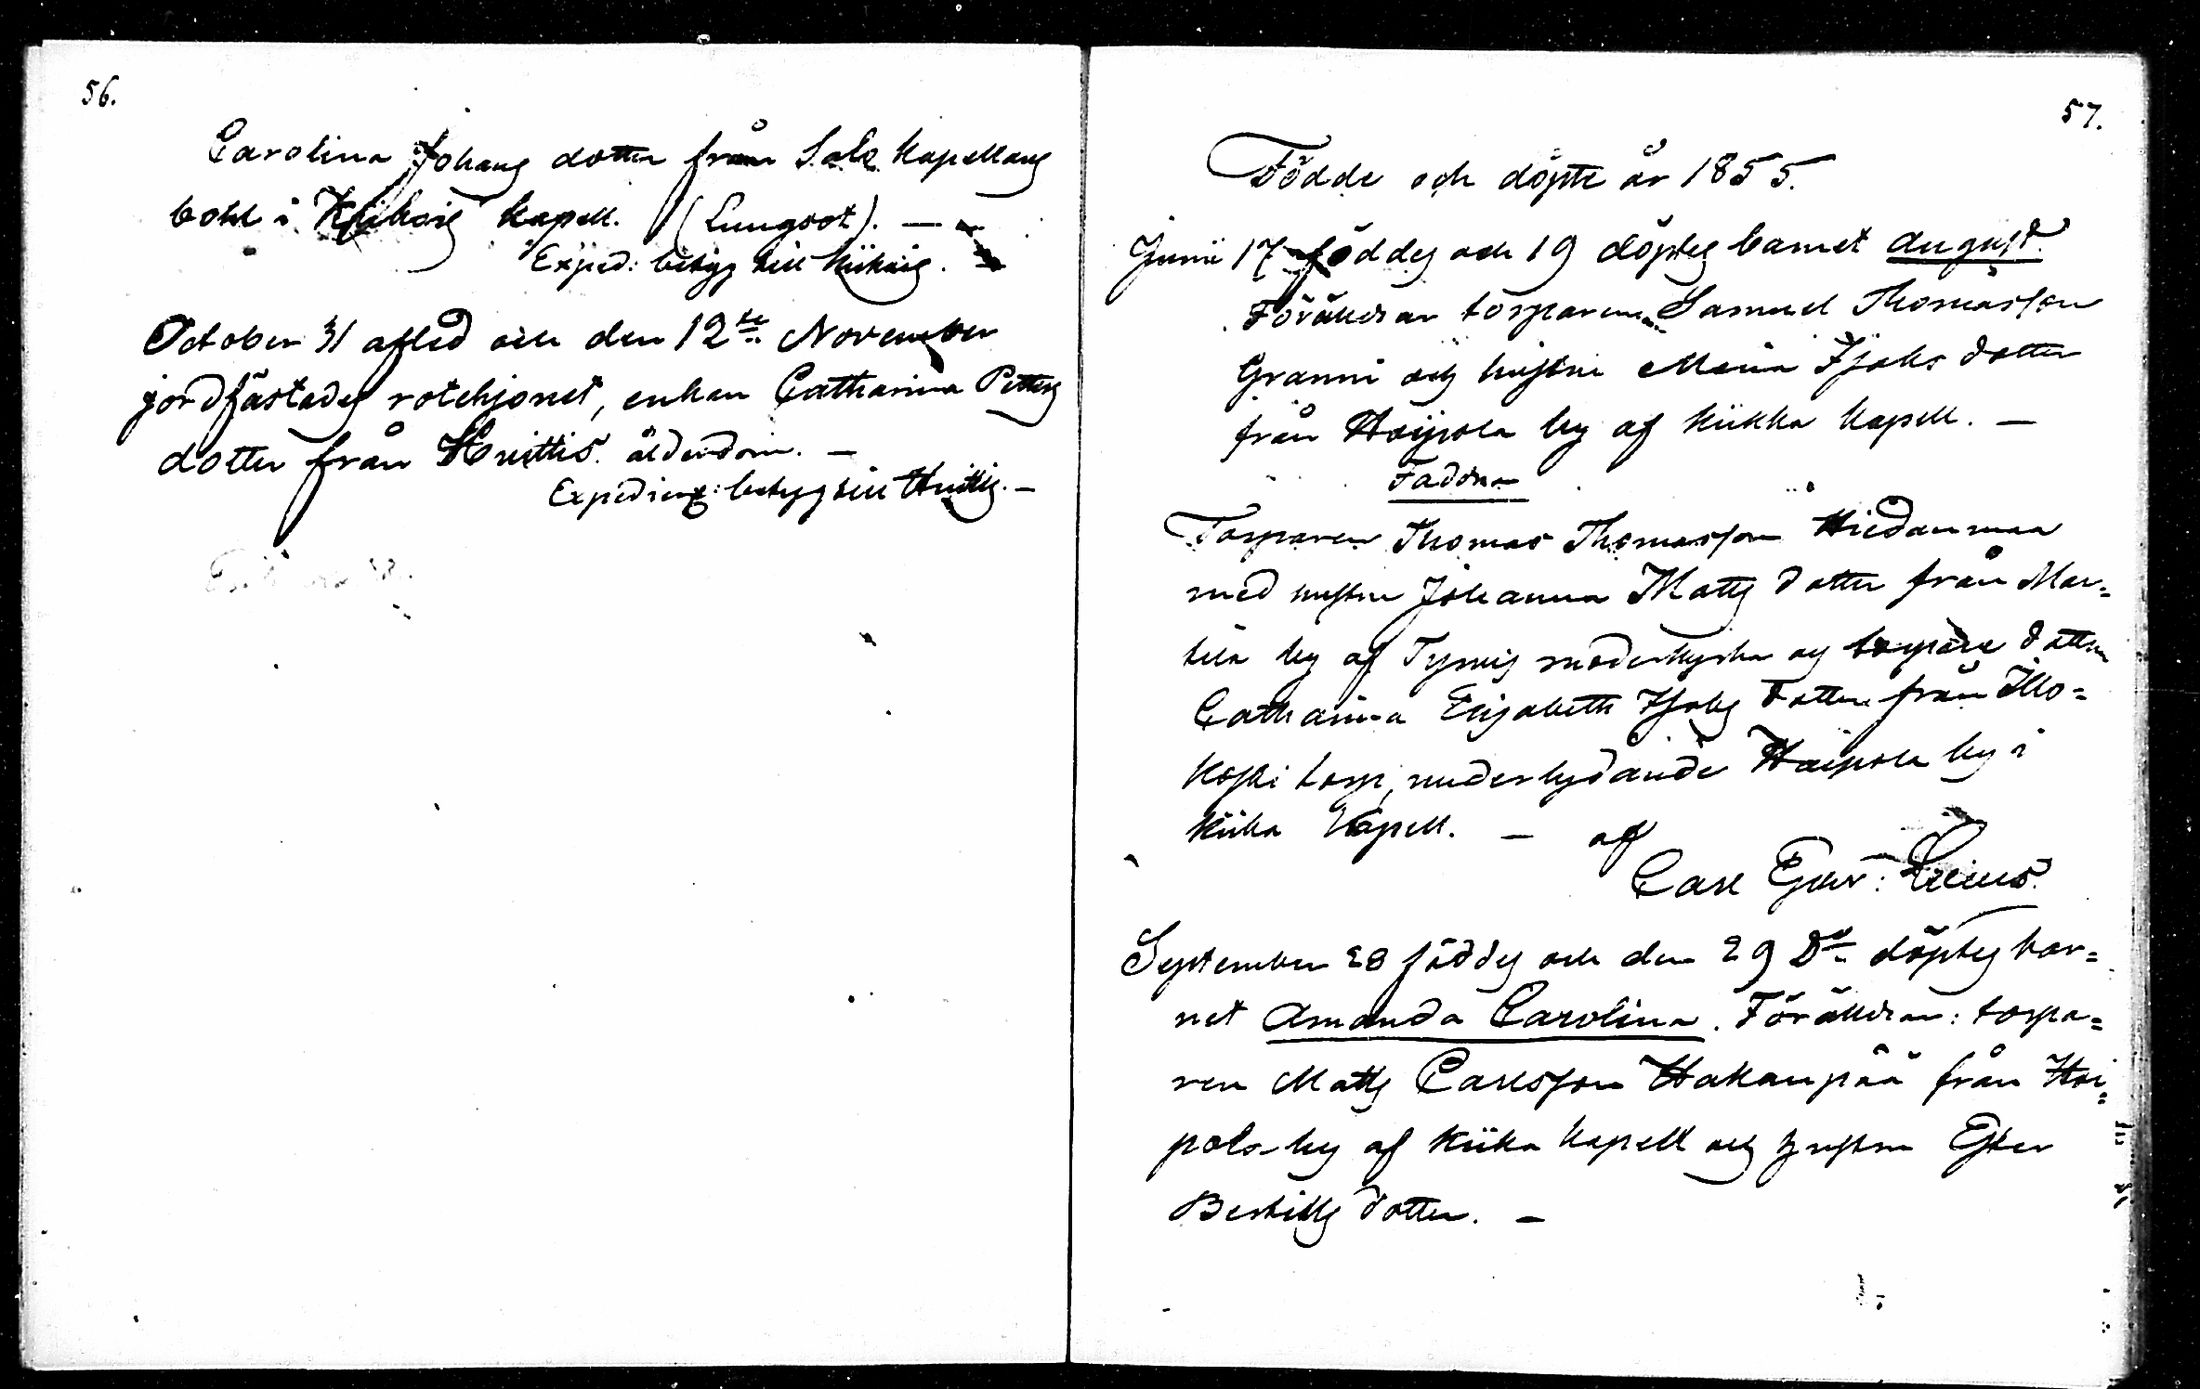 56.
Carolina Johans dotter från Sale Kapellans
bohl i Kiikois Kapell. (Lungsot). —
Exped: betyg till Kiikois.
October 31 afled och den 12te November
jordfästades rotehjonet, enkan Catharina Petters
dotter från Huittis. ålderdom. —
Expedierz: betyg till Huittis. —
57.
Födde och döpte år 1855.
Junii 17 föddes och 19 döptes barnet August.
Föräldrar torparen Samuel Thomasson
Granni och hustru Maria Isaks dotter
från Haipola by af Kiikka Kapell. —
Faddrar
Torparen Thomas Thomasson Hiedanmaa
med hustru Johanna Matts dotter från Mar=
tila by af Tyrvis moderkyrka och torpare dottren
Catharina Elisabeth Isaks dotter från Illo=
koski torp, underlydande Haipola by i
Kiika Kapell. — af
Carl Gust:
September 28 föddes och den 29 Dº döptes bar=
net Amanda Carolina. Föräldrar: torpa=
ren Matts Carlsson Hakanpää från Hai=
pola by af Kiika Kapell och hustru Ester
Bertills dotter. —